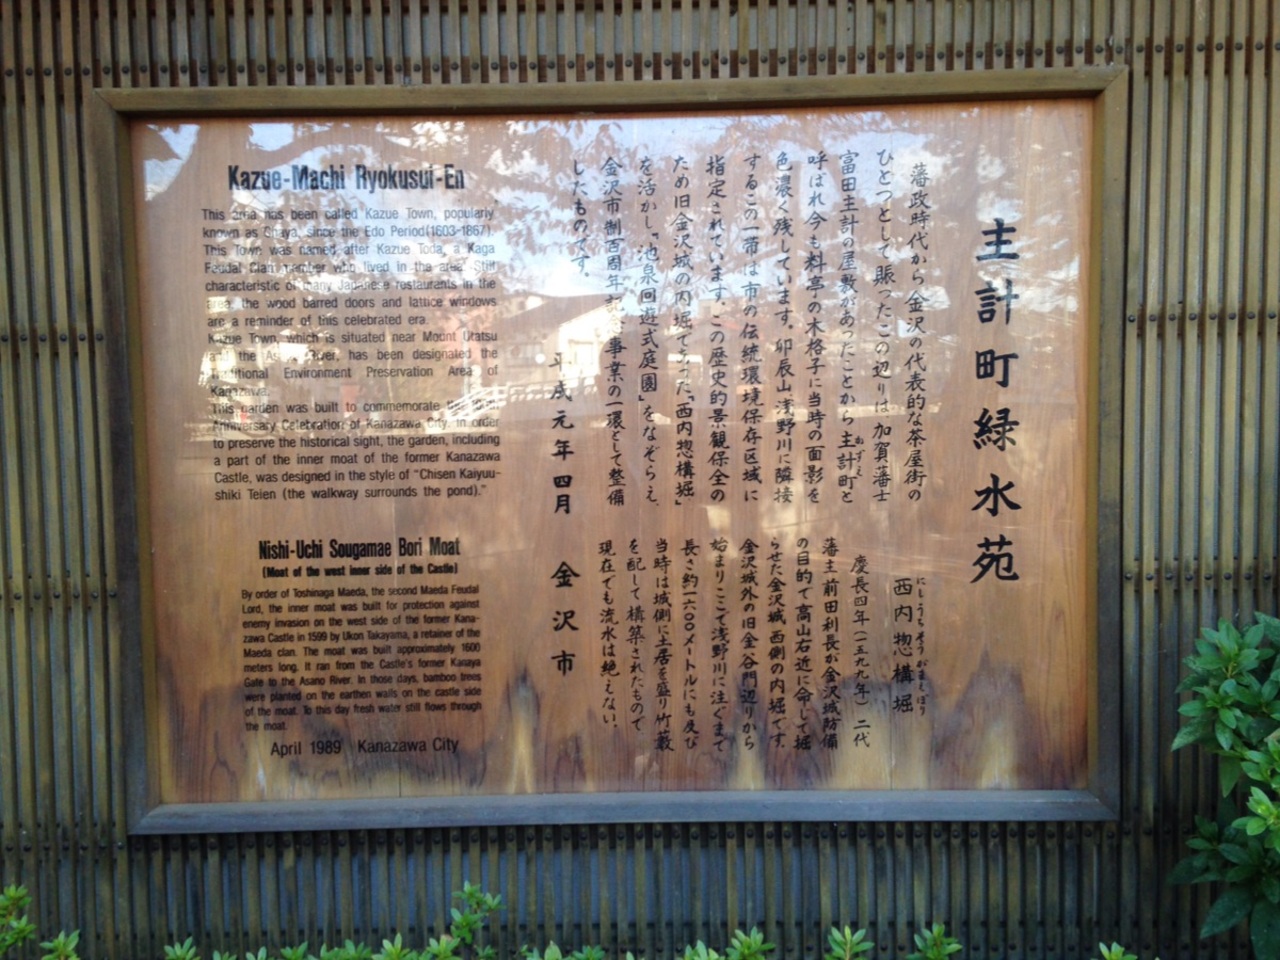 主計町緑水苑
藩政時代から金沢の代表的な茶屋街の
ひとつとして賑ったこの辺りは加賀藩士
富田主計の屋敷があったことから主計町と
かずえ
呼ばれ今も料亭の木格子に当時の面影を
色濃く残しています。卯辰山、浅野川に隣接
するこの一帯は市の伝統環境保存区域に
指定されています。この歴史的景観保全の
ため旧金沢城の内堀であった「西内惣構堀」
を活かし、「池泉回遊式庭園」をなぞらえ、
金沢市制百周年記念事業の一環として整備
したものです。
平成元年四月 金沢市
にしうちそうがまえぼり
西内惣構堀
慶長四年(一五九九年)二代
藩主前田利長が金沢城防備
の目的で高山右近に命じて堀
らせた金沢城西側の内堀です。
金沢城外の旧金谷門辺りから
始まりここで浅野川に注ぐまで
長さ約一六〇〇メートルにも及び
当時は城側に土居を盛り竹藪
を配して構築されたもので
現在でも流水は絶えない。
Kazue-Machi Ryokusui-En
This area has been called Kazue Town, popularly
known as Chaya, since the Edo Period(1603-1867).
This Town was named after Kazue Toda, a Kaga
Feudal Clan member who lived in the area. Still
characteristic of many Japanese restaurants in the
area, the wood barred doors and lattice windows
are a reminder of this celebrated era.
Kazue Town, which is situated near Mount Utatsu
and the Asano River, has been designated the
Traditional Environment Preservation Area of
Kanazawa.
This garden was built to commemorate the 100th
Anniversary Celebration of Kanazawa City. In order
to preserve the historical sight, the garden, including
a part of the inner moat of the former Kanazawa
Castle, was designed in the style of "Chisen Kaiyuu-
shiki Teien (the walkway surrounds the pond)."
Nishi-Uchi Sougamae Bori Moat
(Moat of the west inner side of the Castle)
By order of Toshinaga Maeda, the second Maeda Feudal
Lord, the inner moat was built for protection against
enemy invasion on the west side of the former Kana-
zawa Castle in 1599 by Ukon Takayama, a retainer of the
Maeda clan. The moat was built approximately 1600
meters long. It ran from the Castle's former Kanaya
Gate to the Asano River. In those days, bamboo trees
were planted on the earthen walls on the castle side
of the moat. To this day fresh water still flows through
the moat.
April 1989 Kanazawa City